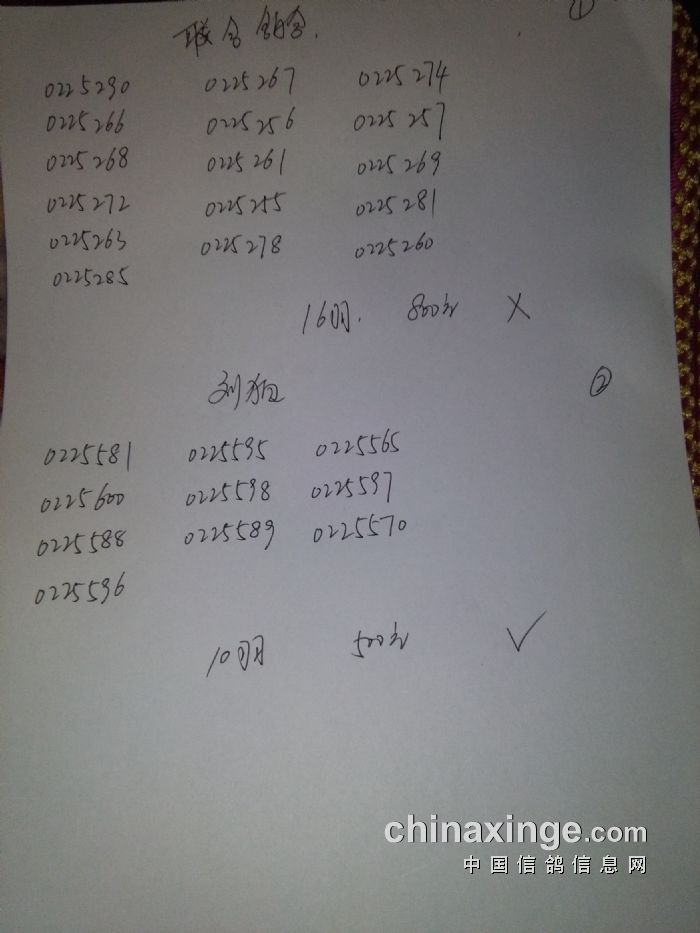 ①
联合鸽舍.
0225290 0225267 0225274
0225266 0225256 0225257
0225268 0225261 0225269
0225272 0225255 0225281
0225263 0225278 0225260
0225285
16羽. 800元 ×
②
0225581 0225595 0225565
0225600 0225598 0225597
0225588 0225589 0225570
0225596
10羽 500元 √
chinaxinge.com
中国信鸽信息网